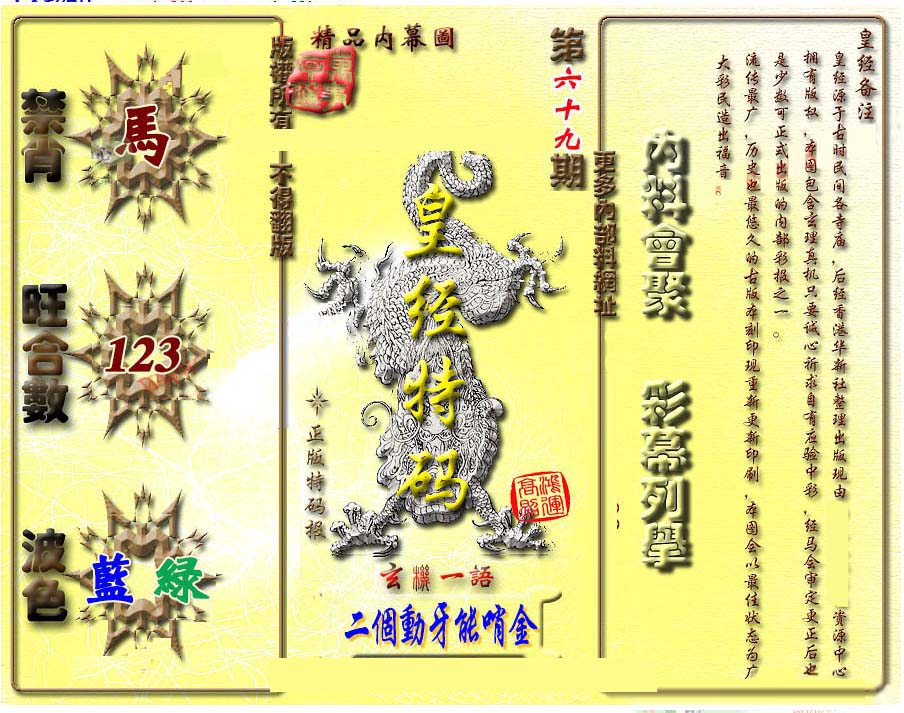 精品内幕圖
版權所有
不得翻版
第六十九期
更多內部料網址
禁肖
馬
旺合數
123
波色
藍 綠
皇经特码
正版特码报
鴻運高照
玄機一語
二個動牙能哨金
內料會聚
彩幕列舉
皇经备注
皇经源于古时民间各寺庙，后经香港华新社整理出版现由 资源中心
拥有版权，本图包含玄理真机只要诚心祈求自有应验中彩，经马会审定更正后也
是少数可正式出版的内部彩报之一。
流传最广，历史也最悠久的古版本刻印现重新更新印刷，本图会以最佳状态为广
大彩民造出福音